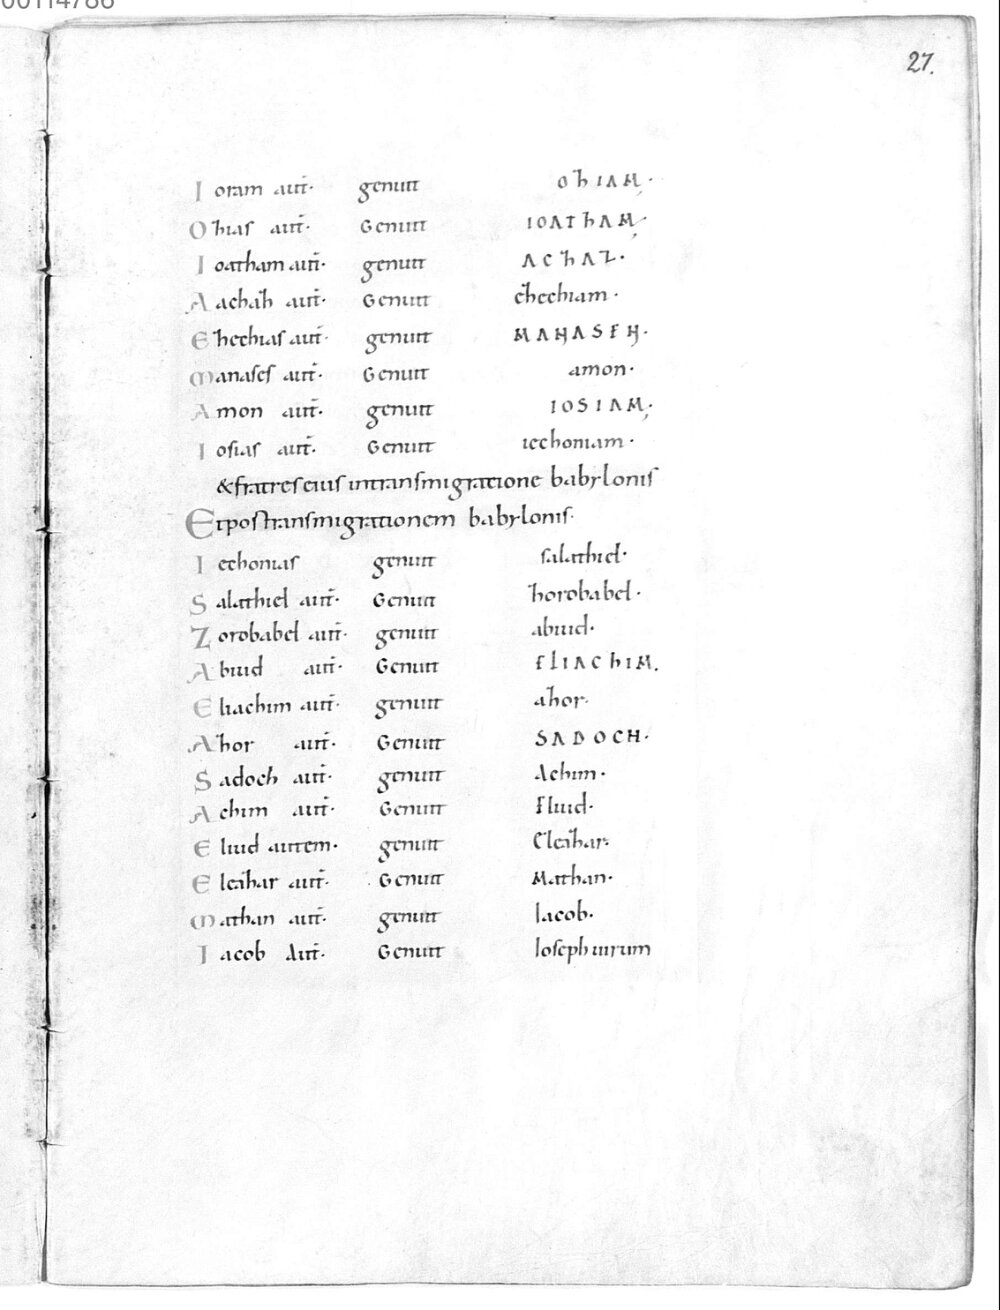 00114786
27.
Ioram aut̄· genuit OhIAM·
Ohias aut̄· Genuit IOAThAM·
Ioatham aut̄· genuit AChAZ·
Aachah aut̄· Genuit ehechiam·
Ehechias aut̄· genuit MANASEN·
Manases aut̄· Genuit amon·
Amon aut̄· genuit IOSIAM·
Iosias aut̄· Genuit iechoniam·
&fratres eius intransmigratione babylonis
Etpostransmigrationem babylonis·
Iechonias genuit salathiel·
Salathiel aut̄· Genuit horobabel·
Zorobabel aut̄· genuit abiud·
Abiud aut̄· Genuit ELIAChIM.
Eliachim aut̄· genuit ahor·
Ahor aut̄· Genuit SADOCH·
Sadoch aut̄· genuit Achim·
Achim aut̄· Genuit Eliud·
Eliud autem· genuit Eleahar·
Eleahar aut̄· Genuit Matthan·
Mathan aut̄· genuit Iacob·
Iacob Aut̄· Genuit Ioseph uirum